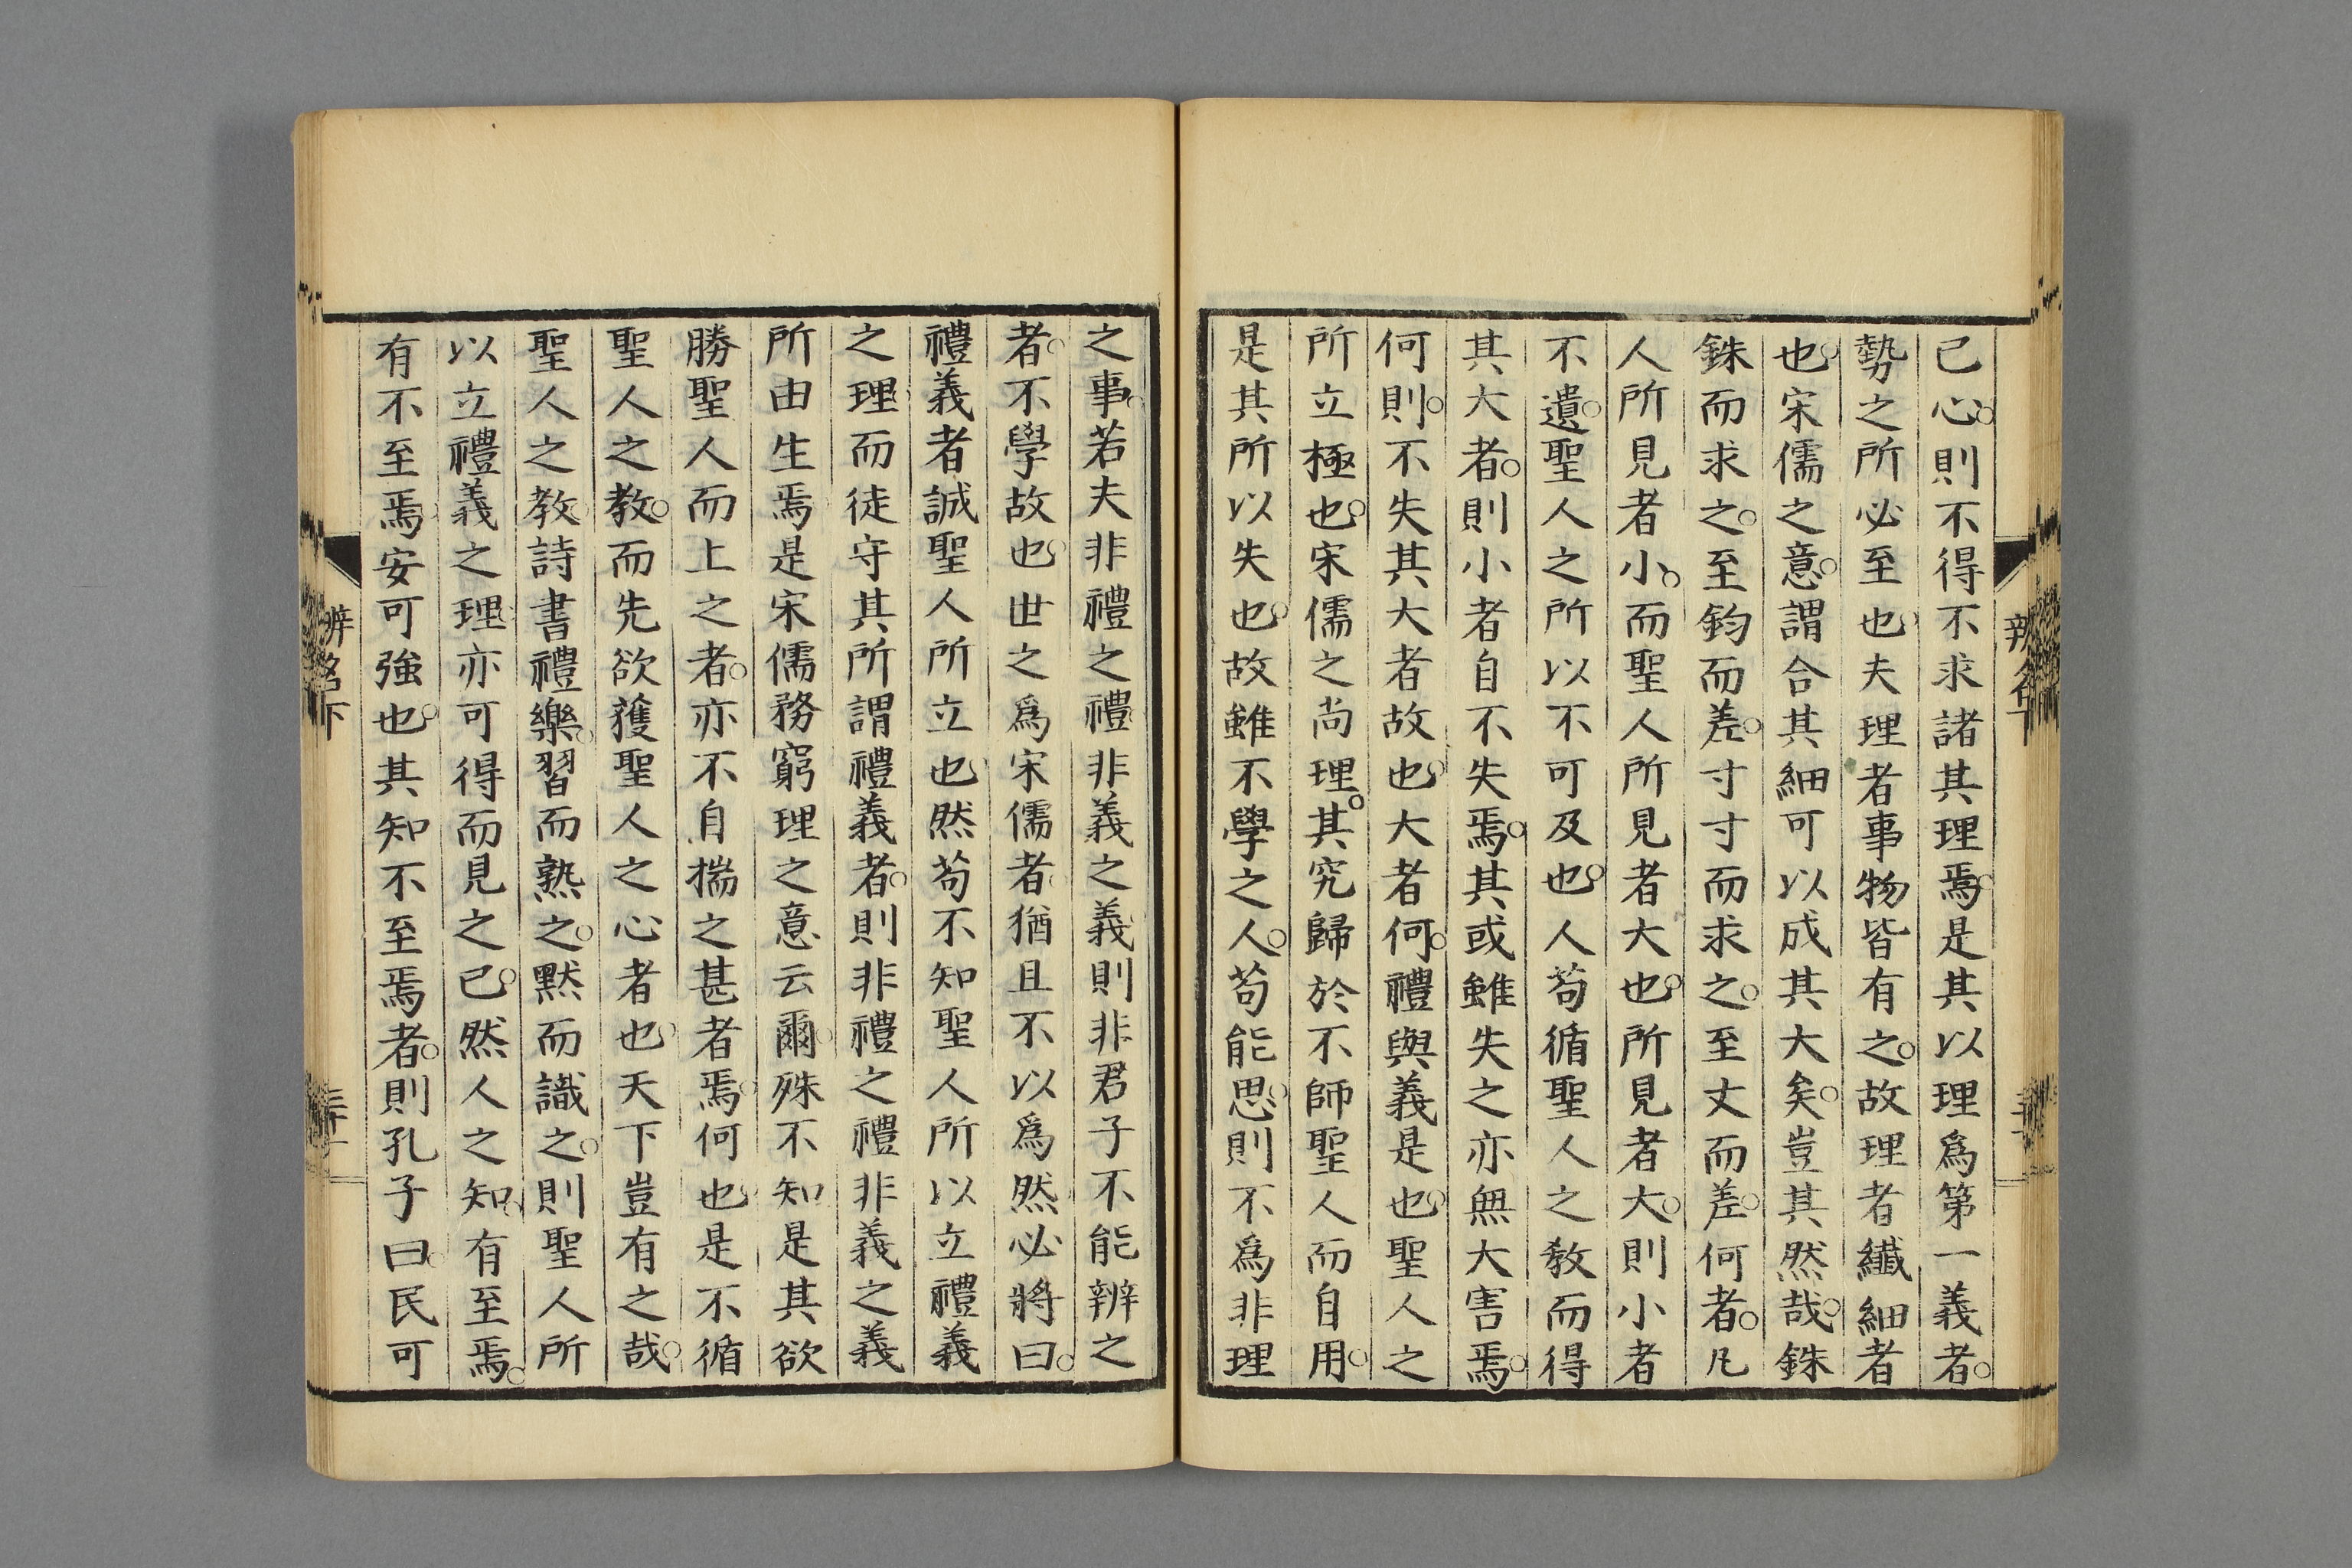 己心。則不得不求諸其理焉。是其以理爲第一義者。
勢之所必至也。夫理者事物皆有之。故理者纎細者
也。宋儒之意。謂合其細可以成其大矣。豈其然哉。銖
銖而求之。至鈞而差。寸寸而求之。至丈而差。何者。凡
人所見者小。而聖人所見者大也。所見者大。則小者
不遺。聖人之所以不可及也。人苟循聖人之教而得
其大者。則小者自不失焉。其或雖失之亦無大害焉。
何則。不失其大者故也。大者何。禮與義是也。聖人之
所立極也。宋儒之尚理。其究歸於不師聖人而自用。
是其所以失也。故雖不學之人。苟能思。則不爲非理
之事。若夫非禮之禮非義之義。則非君子不能辨之
者。不學故也。世之爲宋儒者。猶且不以爲然。必將曰。
禮義者誠聖人所立也。然苟不知聖人所以立禮義
之理。而徒守其所謂禮義者。則非禮之禮非義之義
所由生焉。是宋儒務窮理之意云爾。殊不知是其欲
勝聖人而上之者。亦不自揣之甚者焉。何也。是不循
聖人之教。而先欲獲聖人之心者也。天下豈有之哉。
聖人之教。詩書禮樂。習而熟之。默而識之。則聖人所
以立禮義之理。亦可得而見之已。然人之知。有至焉。
有不至焉。安可強也。其知不至焉者。則孔子曰。民可
辨名下